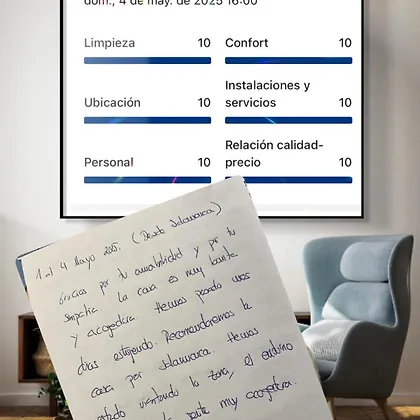 dom., 4 de may. de 2025 16:00
Limpieza 10
Confort 10
Ubicación 10
Instalaciones y
servicios 10
Personal 10
Relación calidad-
precio 10
1 al 4 Mayo 2025. (Desde Salamanca)
Gracias por tu amabilidad y por tu
simpatía. La casa es muy bonita
y acogedora. Hemos pasado unos
días estupendo. Recomendaremos la
casa por Salamanca. Hemos
estado visitando la zona, el entorno
gente muy acogedora.